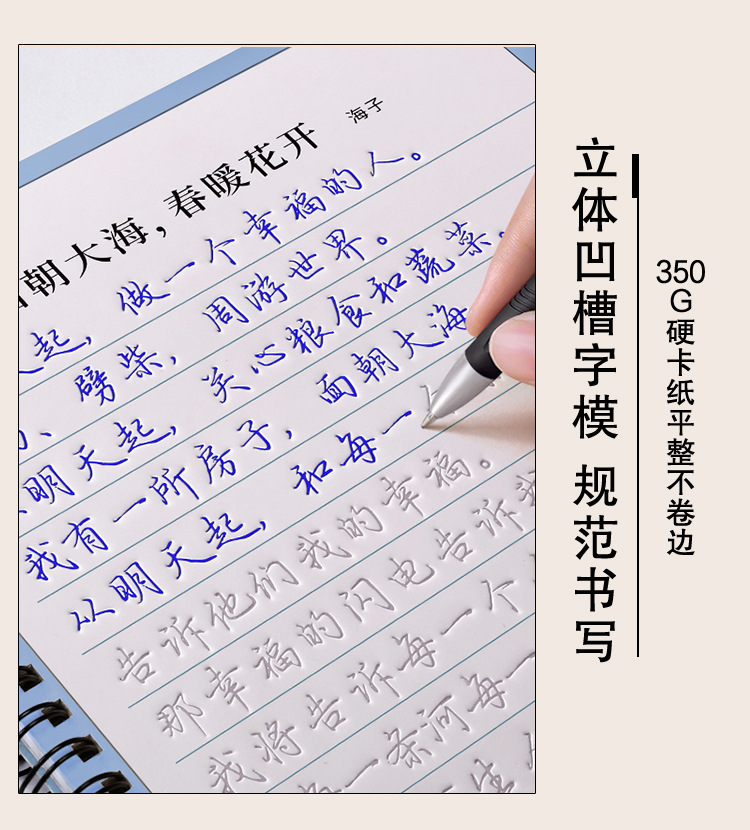 朝大海，春暖花开
海子
起，做一个幸福的人。
劈柴，周游世界。
明天起，关心粮食和蔬菜。
我有一所房子，面朝大海
从明天起，和每一
告诉他们我的幸福。
那幸福的闪电告诉我
我将告诉每一个
一条河每一
生
立体凹槽字模 规范书写
350G硬卡纸平整不卷边